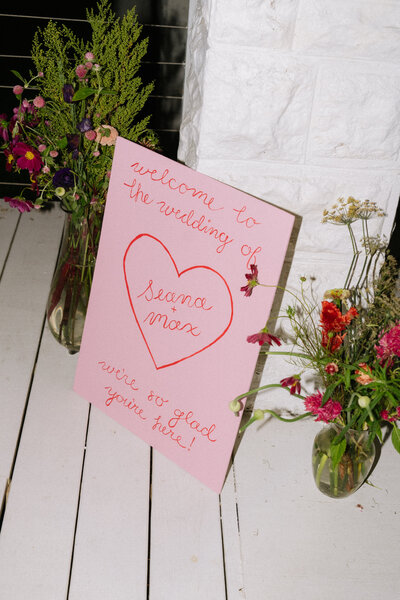 welcome to
the wedding of
Seana
+
max
we're so glad
you're here!